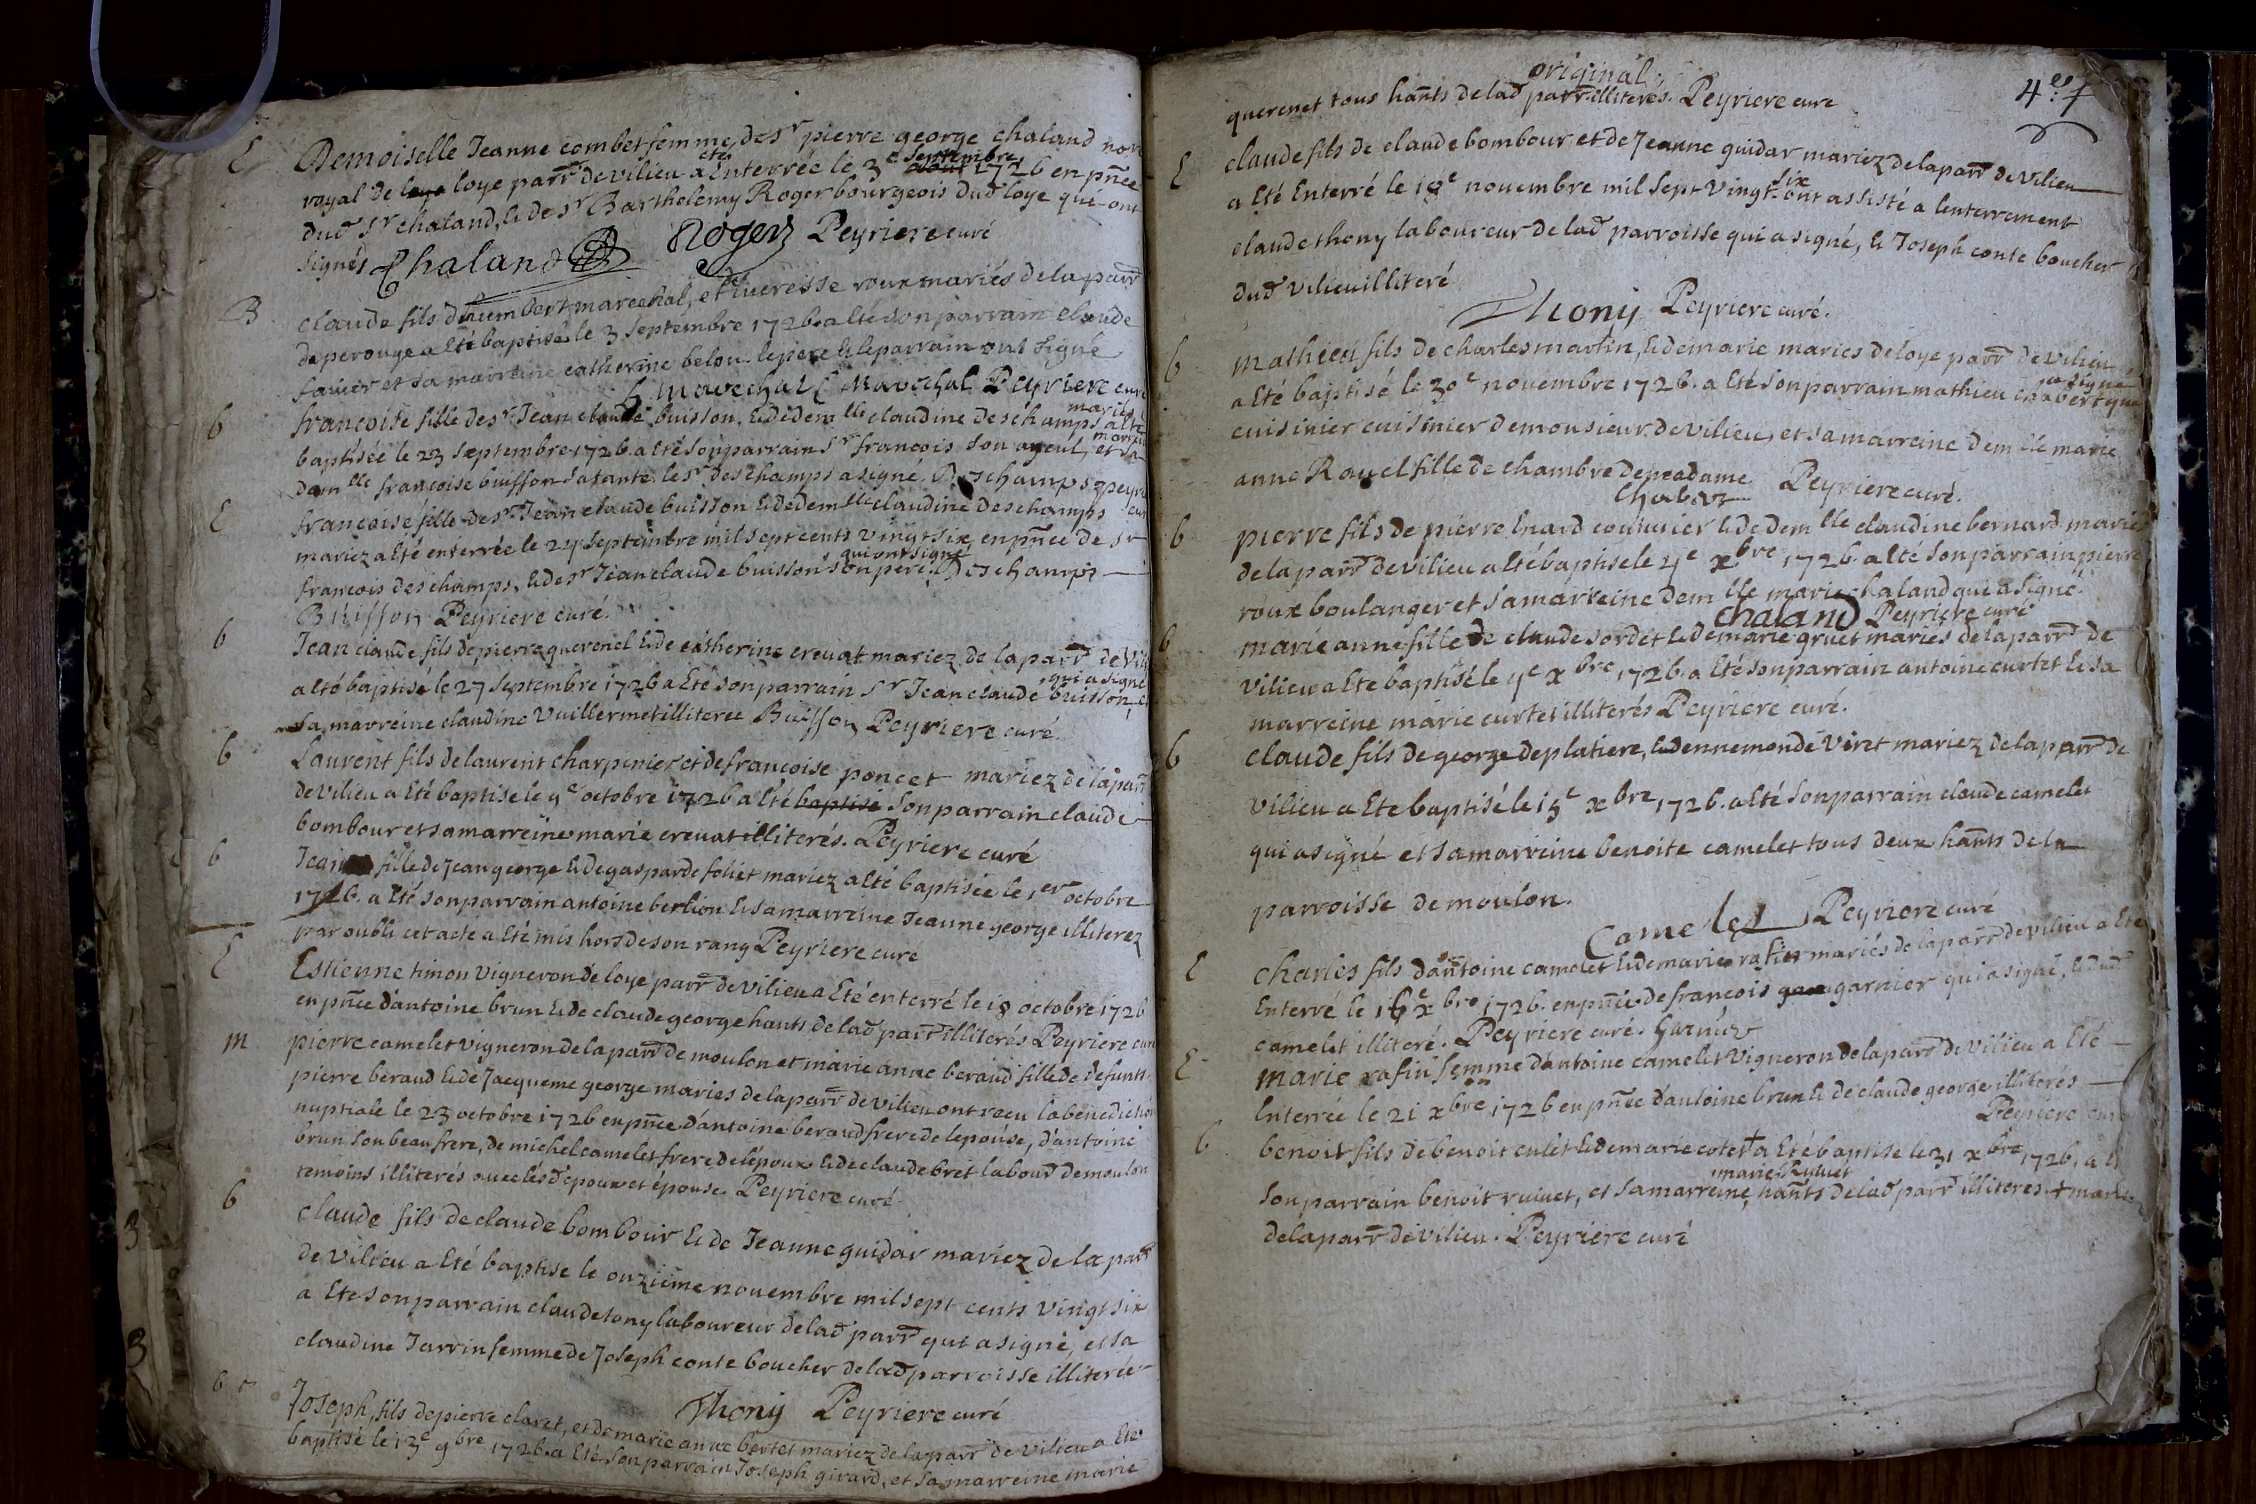 E Demoiselle Jeanne combet femme de sr pierre george chaland nore
royal de loye parr de vilieu a eté Enterrée le 3e septembre 1726 en pnce
dud sr chaland, & de sr Barthelemy Roger bourgeois dud loye qui ont
signés Chaland Roger Peyriere curé
B claude fils d'humbert marechal, et
roux mariés de la parr
de perouge a Eté baptisé le 3 septembre 1726. a Eté son parrain claude
et sa marreine catherine belou. le pere & le parrain ont signé
h marechal C Marechal Peyriere curé
b francoise fille de sr Jean claude buisson, & de demlle claudine deschamps mariés a Eté
baptisée le 23 septembre 1726. a Eté son parrain sr francois son ayeul, et sa marreine
demlle francoise buisson sa tante. le sr deschamps a signé. Deschamps peyriere
E francoise fille de sr Jean claude buisson & de demlle claudine deschamps curé
mariez a Eté enterrée le 24 septembre mil sept cents vingt six en pnce de sr
francois deschamps, & de sr Jean claude buisson son pere qui ont signé Deschamps
Buisson Peyriere curé.
b Jean claude fils de pierre querenel & de catherine crevat mariez de la parr de vili
a Eté baptisé le 27 septembre 1726 a Eté son parrain sr Jean claude buisson, qui a signé &
sa marreine claudine vuillermet illiteree Buisson Peyriere curé
b Laurent fils de laurent charpinier et de francoise poncet mariez de la parr
de vilieu a Eté baptisé le 9e octobre 1726 a Eté baptisé son parrain claude
bombour et sa marreine marie crevat illiterés. Peyriere curé
b fille de Jean george & de gasparde foliet mariez a Eté baptisée le 1er octobre
1726. a Eté son parrain antoine berlion & sa marreine Jeanne george illiterez
par oubli cet acte a Eté mis hors de son rang Peyriere curé
E Estienne timon vigneron de loye parr de vilieu a Eté enterré le 18 octobre 1726
en pnce d'antoine brun & de claude george hants de lad parr illiterés Peyriere curé
m pierre camelet vigneron de la parr de moulon et marie anne beraud fille de defunts
pierre beraud & de Jacqueme george mariés de la parr de vilieu ont recu la benediction
nuptiale le 23 octobre 1726 en pnce d'antoine beraud frere de lepouse, d'antoine
brun son beau frere, de michel camelet frere de lépoux & de claude bret labour de moulon
temoins illiterés avec lésd époux et épouse. Peyriere curé.
b claude fils de claude bombour & de Jeanne guidar mariez de la parr
de vilieu a Eté baptisé le onzieme novembre mil sept cents vingt six
a Eté son parrain claude tony laboureur de lad parr qui a signé, et sa
claudine Jarrin femme de Joseph conte boucher de lad parroisse illiterée
Thony Peyriere curé
b Joseph fils de pierre claret, et de marie anne bertet mariez de la parr de vilieu a Eté
baptisé le 13e 9bre 1726. a Eté son parrain Joseph girard, et sa marreine marie
original.
4e. f
querenet tous hants de lad parr illiterés. Peyriere curé
E claude fils de claude bombour et de Jeanne guidar mariez de la parr de vilieu
a Eté Enterré le 18e novembre mil sept vingt six ont assisté a lenterrement
claude thony laboureur de lad parroisse qui a signé, & Joseph conte boucher
dud vilieu illiteré
Thony Peyriere curé.
b mathieu fils de charles martin, & de marie mariés de loye parr de vilieu
a Eté baptisé le 30e novembre 1726. a Eté son parrain mathieu chabert qui a signé
cuisinier cuisinier de monsieur de vilieu, et sa marreine demlle marie
anne Ravel fille de chambre de madame
Chaber Peyriere curé.
b pierre fils de pierre & de demlle claudine bernard mariez
de la parr de vilieu a Eté baptisé le 4e xbre 1726. a Eté son parrain pierre
roux boulanger et sa marreine demlle marie chaland qui a signé.
chaland Peyriere curé
b marie anne fille de claude sordet & de marie gruet mariés de la parr de
vilieu a Eté baptisé le 9e xbre 1726. a Eté son parrain antoine curtet & sa
marreine marie curtet illiterés Peyriere curé.
b claude fils de george deplatiere, & dennemonde viret mariez de la parr de
vilieu a Eté baptisé le 15e xbre 1726. a Eté son parrain claude camelet
qui a signé et sa marreine benoite camelet tous deux hants de la
parroisse de moulon.
Camelet Peyriere curé
E charles fils d'antoine camelet & de marie rafin mariés de la parr de vilieu a Eté
Enterré le 16e xbre 1726. en pnce de francois garnier qui a signé, & dud
camelet illiteré. Peyriere curé. Garnier
E marie rafin femme d'antoine camelet vigneron de la parr de vilieu a Eté
Enterrée le 21 xbre 1726 en pnce d'antoine brun & de claude george illiterés
Peyriere curé
b benoit fils de benoit culet & de marie cotet + a Eté baptisé le 31 xbre 1726, a Eté
son parrain benoit ruivet, et sa marreine marie Ruivet hants de lad parr illiterés + mariez
de la parr de vilieu. Peyriere curé